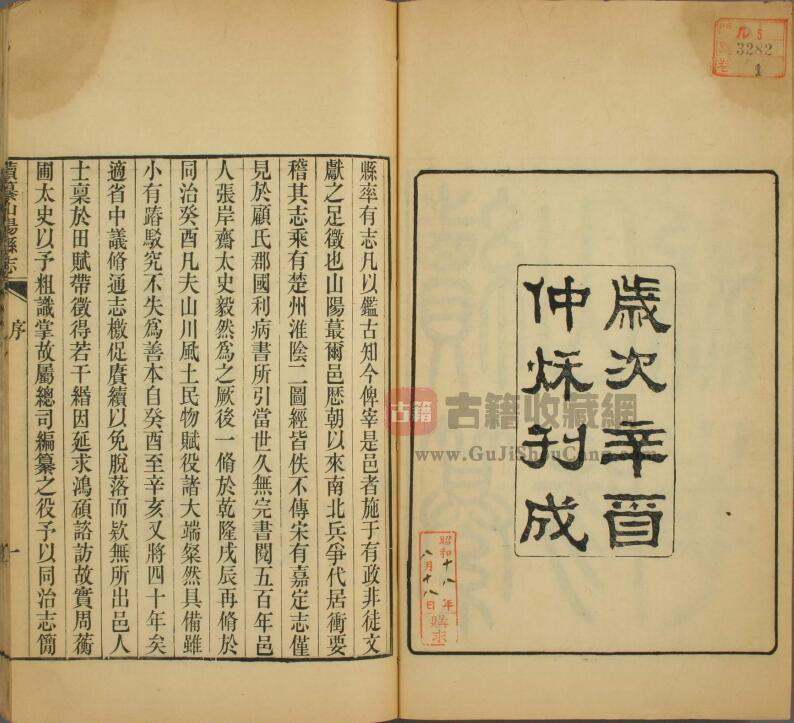 3282
歲次辛酉
仲秌刊成
昭和十八年
八月十八日
購求
縣率有志凡以鑑古知今俾宰是邑者施于有政非徒文
獻之足徵也山陽蕞爾邑歷朝以來南北兵爭代居衝要
稽其志乘有楚州淮陰二圖經皆佚不傳宋有嘉定志僅
見於顧氏郡國利病書所引當世久無完書閱五百年邑
人張岸齋太史毅然爲之厥後一脩於乾隆戊辰再脩於
同治癸酉凡夫山川風土民物賦役諸大端粲然具備雖
小有踳駁究不失爲善本自癸酉至辛亥又將四十年矣
適省中議脩通志檄促賡續以免脫落而欵無所出邑人
士稟於田賦帶徵得若干緡因延求鴻碩諮訪故實周蘅
圃太史以予粗識掌故屬總司編纂之役予以同治志簡
續纂山陽縣志
序
一
古籍
古籍收藏網
www.GuJiShouCang.com